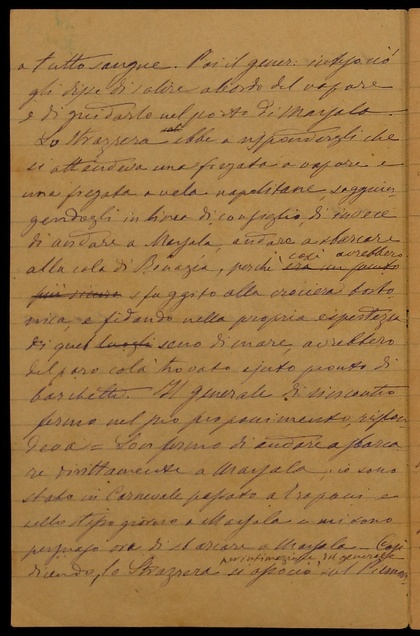 a tutto sangue. Poi il gener:
gli disse di salire a bordo del vapore
e di guidarlo nel porto di Marsala.
Lo Strazzera ebbe a rispondergli che
si attendeva una fregata a vapore e
una fregata a vela napolitane soggiun
gendogli in linea di consiglio, di invece
di andare a Marsala, andare a sbarcare
alla cala di Bonagia, perchè così avrebbero
più sicuro sfuggito alla crociera borbo
nica, e fidando nella propria espertezza
di quel luoghi seno di mare, avrebbero
del pero colà trovato ajuto pronto di
barchette. Il Generale
fermo nel pro proponimento, rispon
deva = Son fermo di andare a sbarca
re direttamente a Marsala; io sono
stato in Carnevale passato a Trapani e
nello stesso giorno a Marsala e mi sono
persuaso ora di sbarcare a Marsala — Così
dicendo, lo Strazzera all'intimazione del generale
si associò col Piemon